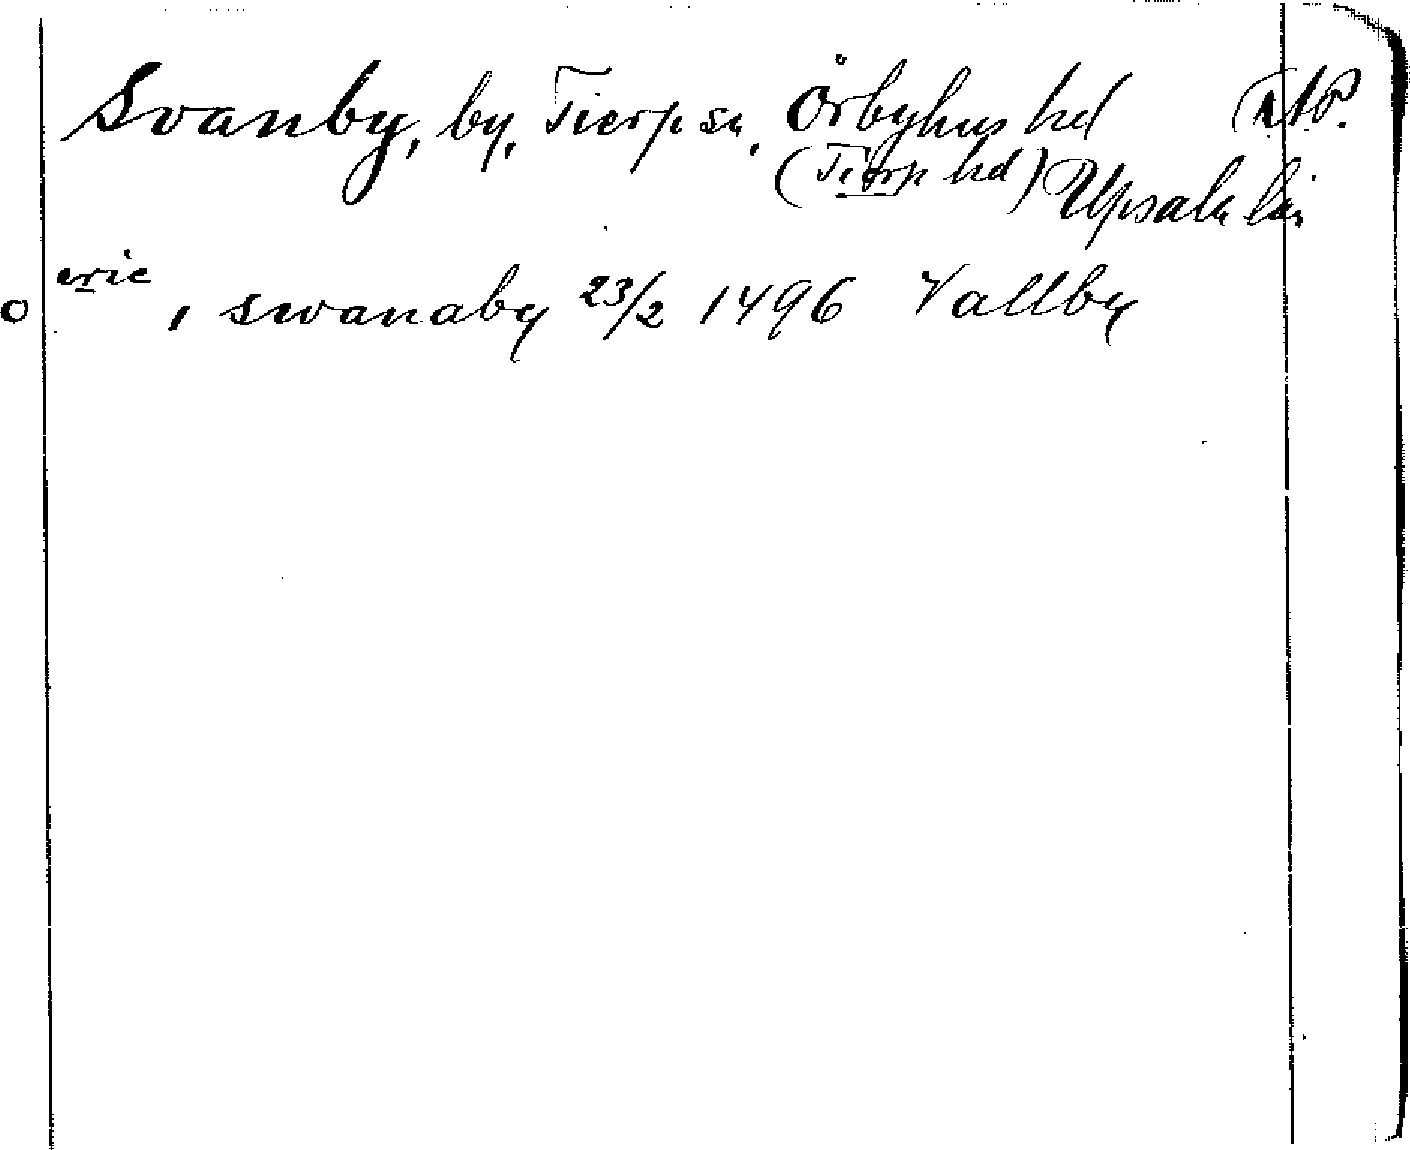 Svanby, by, Tierp sn, Örbyhus hd
(Tierp hd) Upsala län
eric
o , swanaby 23/2 1496 Vallby